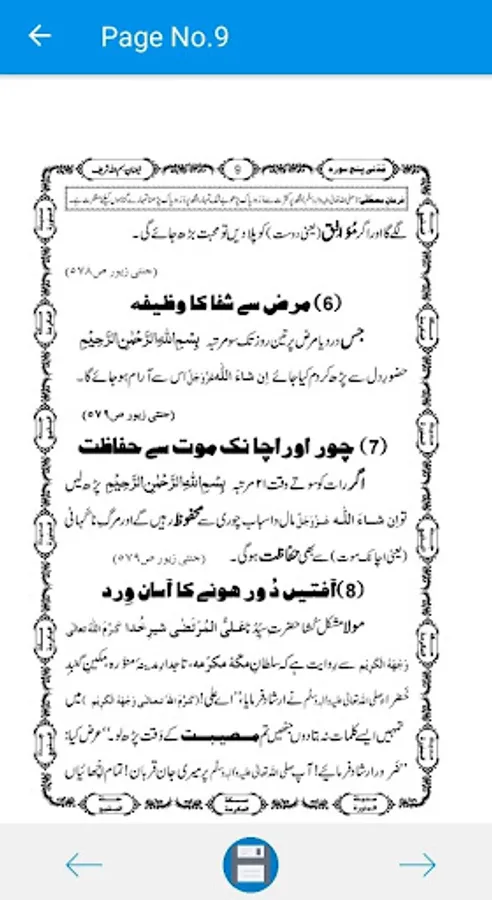 Page No.9
مَدَنی پنج سورہ
9
فیضانِ بسم اللہ شریف
فرمانِ مصطفےٰ
لگے گا اور اگر مُوافِق (یعنی دوست) کو پلا دیں تو محبت بڑھ جائے گی۔
(جنتی زیور ص۵۷۸)
(6) مرض سے شفا کا وظیفہ
جس درد یا مرض پر تین روز تک سو مرتبہ بِسْمِ اللّٰهِ الرَّحْمٰنِ الرَّحِيْمِ
حضورِ دل سے پڑھ کر دم کیا جائے اِن شَاءَ اللّٰه عَزَّوَجَلَّ اس سے آرام ہو جائے گا۔
(جنتی زیور ص۵۷۹)
(7) چور اور اچانک موت سے حفاظت
اگر رات کو سوتے وقت ۲۱ مرتبہ بِسْمِ اللّٰهِ الرَّحْمٰنِ الرَّحِيْمِ پڑھ لیں
تو اِن شَاءَ اللّٰه عَزَّوَجَلَّ مال و اسباب چوری سے محفوظ رہیں گے اور مرگِ ناگہانی
(یعنی اچانک موت) سے بھی حفاظت ہو گی۔ (جنتی زیور ص۵۷۹)
(8) آفتیں دُور ہونے کا آسان وِرد
مولا مشکل کُشا حضرت سیِّدُنا عَلِیُّ الْمُرتَضٰی شیرِ خدا كَرَّمَ اللّٰهُ تعالٰى
وَجْهَهُ الْكَرِيْم سے روایت ہے کہ سلطانِ مکّۂ مکرّمہ، تاجدارِ مدینۂ منوّرہ، مکینِ گنبدِ
خَضرا صلی اللہ تعالیٰ علیہ والہٖ وسلم نے ارشاد فرمایا: ’’اے علی! (كَرَّمَ اللّٰهُ تعالٰى وَجْهَهُ الْكَرِيْم) میں
تمہیں ایسے کلمات نہ بتادوں جنہیں تم مصیبت کے وقت پڑھ لو۔‘‘ عرض کیا:
’’ضرور ارشاد فرمائیے! آپ صلی اللہ تعالیٰ علیہ والہٖ وسلم پر میری جان قربان! تمام اچھائیاں